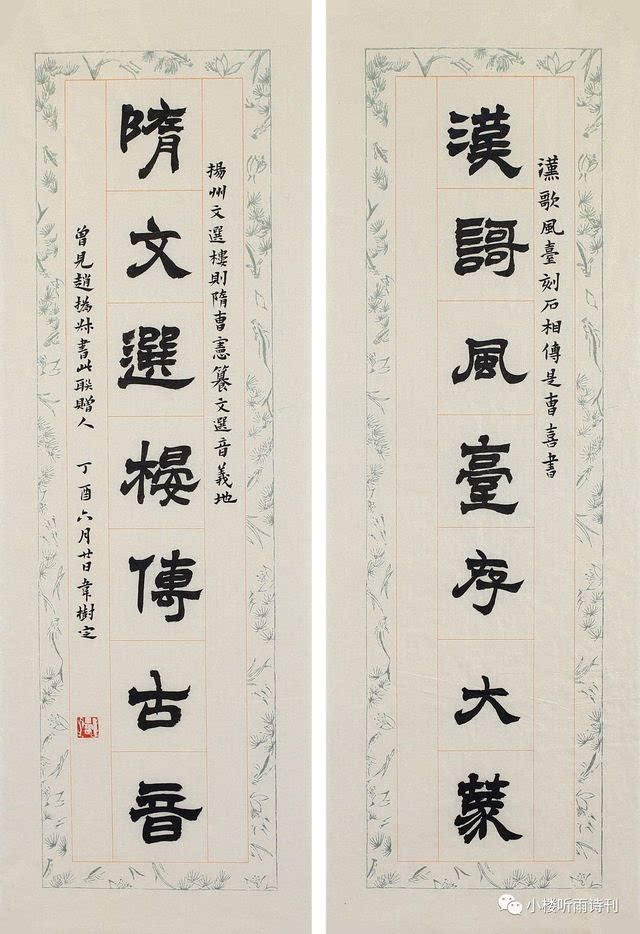 漢歌風臺刻石相傳是曹喜書
漢謌風臺存大篆
揚州文選樓則隋曹憲纂文選音義地
隋文選樓傳古音
曾見趙撝叔書此聯贈人 丁酉六月廿日韋樹定
小楼听雨诗刊